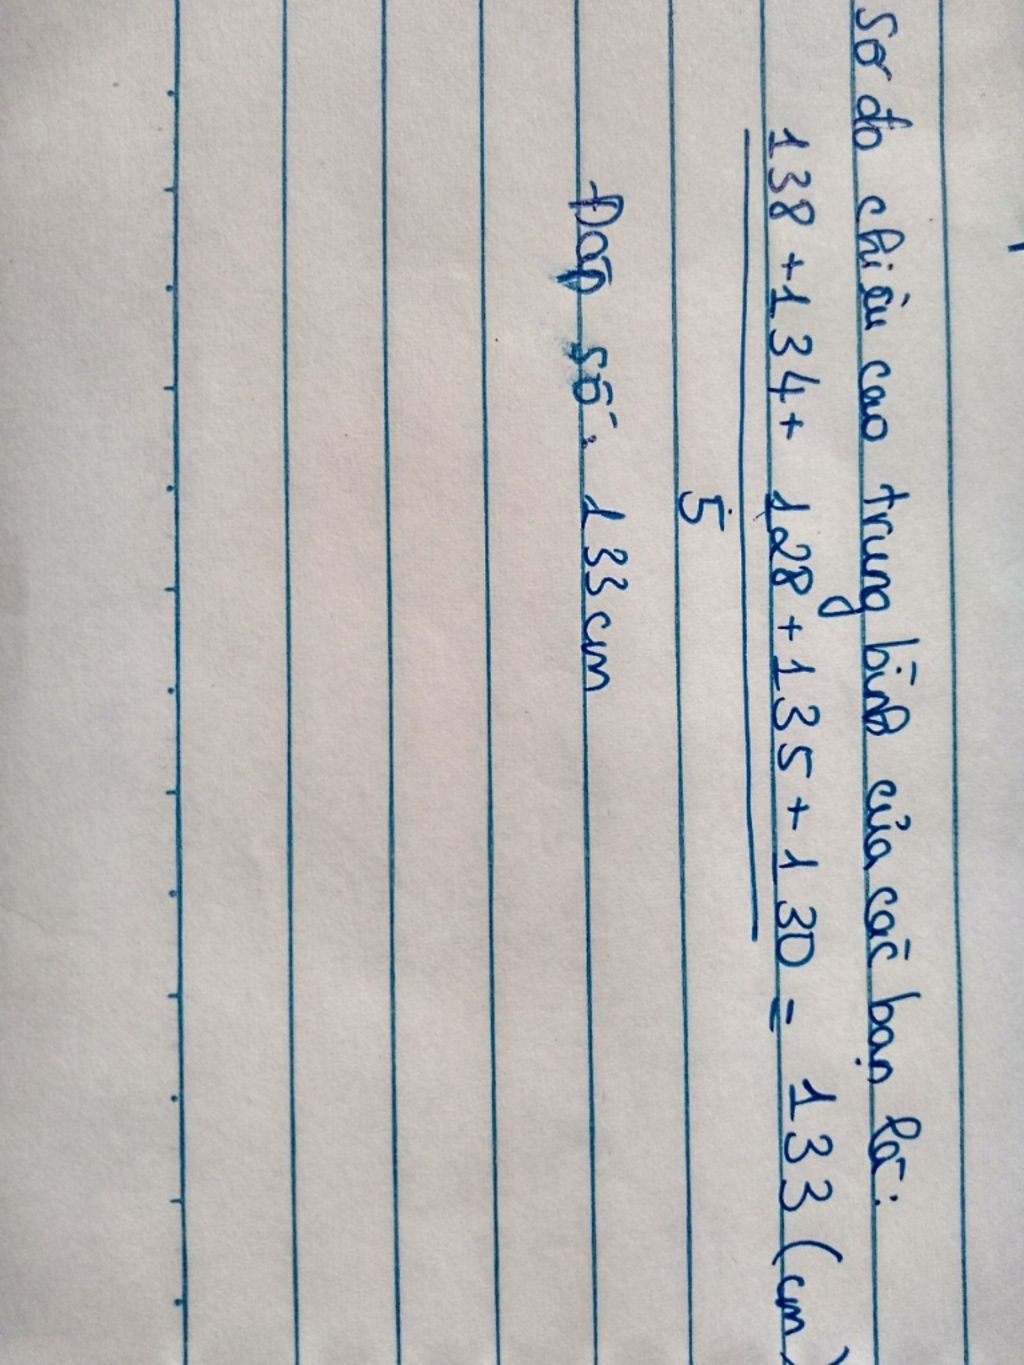 Số đo chiều cao trung bình của các bạn là:
138 + 134 + 128 + 135 + 130 = 133 (cm)
5
Đáp số: 133 cm